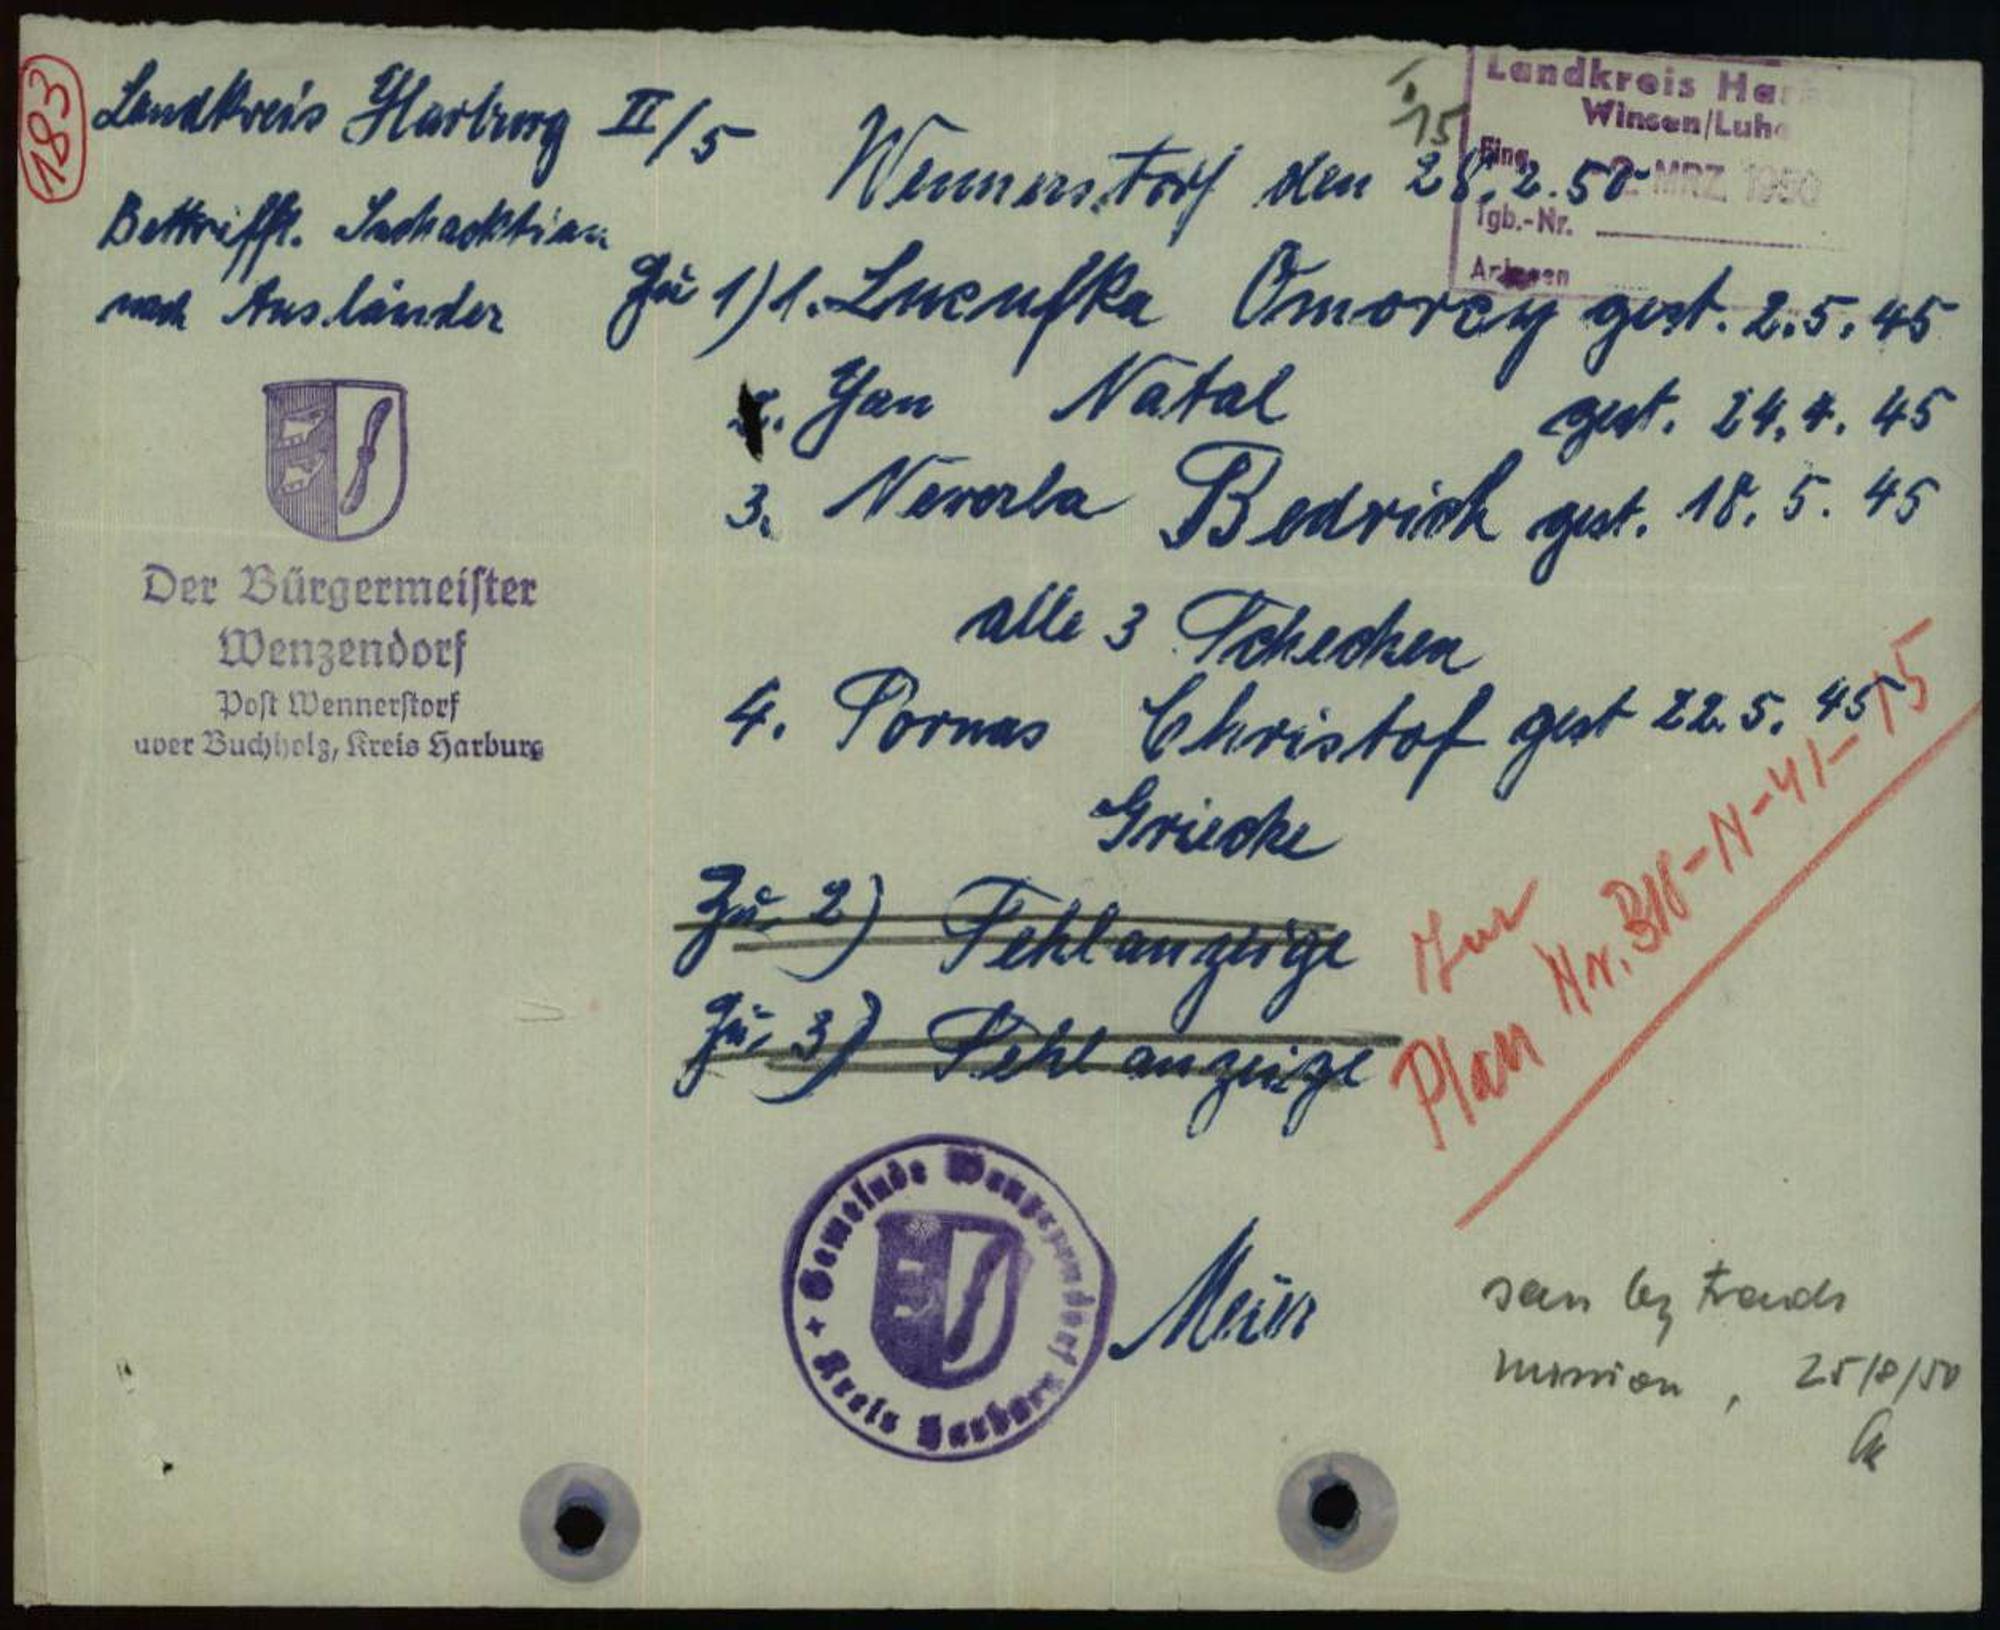 183
Landkreis Harburg II/5
15
Landkreis Har
Winsen/Luhe
Eing. 2. MRZ 1950
Tgb.-Nr.
Anlagen
Wennerstorf den 28.2.50
Bettrifft. Suchacktion
nach Ausländer
Zu 1) 1. Lucufka Omorcy gest. 2.5.45
2. Jan Natal gest. 24.4.45
3. Neverla Bedrich gest. 18.5.45
alle 3 Tschechen
4. Pornas Christof gest 22.5.45
Grieche
Zu. 2) Fehlanzeige
Zu. 3) Fehlanzeige
Der Bürgermeister
Wenzendorf
Post Wennerstorf
über Buchholz, Kreis Harburg
Zur
Plan Nr. BII-N-41-15
Gemeinde Wenzendorf
Kreis Harburg
Meier
seen by French
mission, 25/8/50